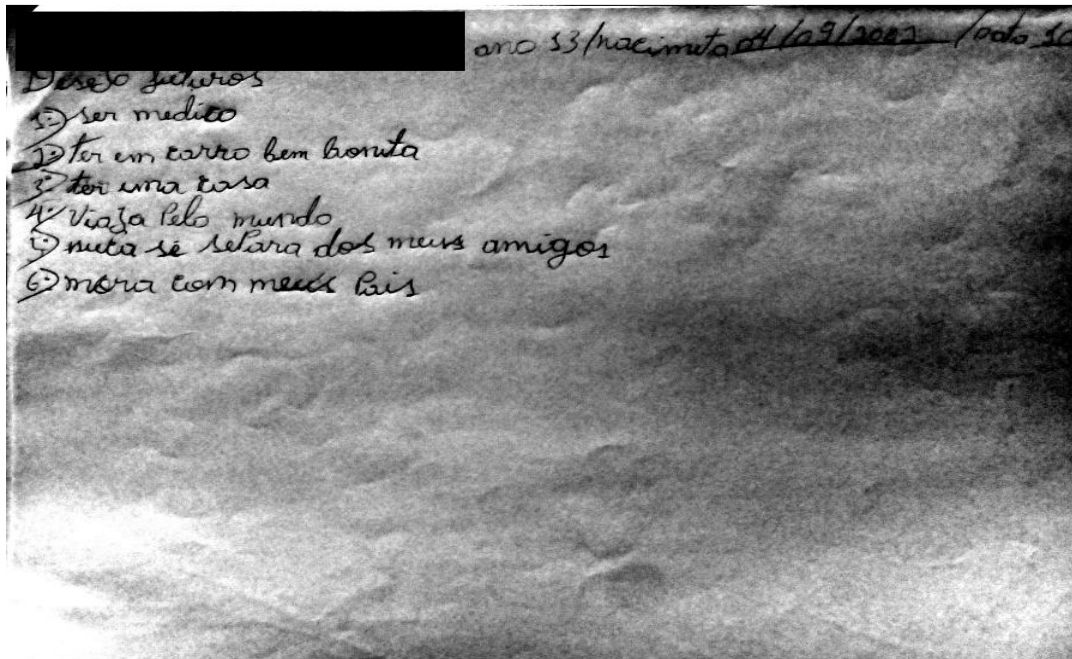 ano 13/nacimeto 04/09/2002 /data 10
Desejo futuros
1º) ser medico
2º) ter em carro bem bonita
3º) ter uma casa
4º) Viaja Pelo mundo
5º) nuca se separa dos meus amigos
6º) mora com meus Pais